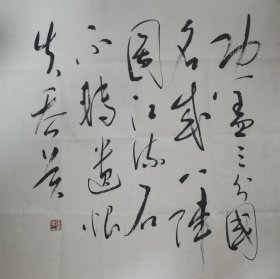 功盖三分国
名成八阵
图江流石
不转遗恨
失吞吴